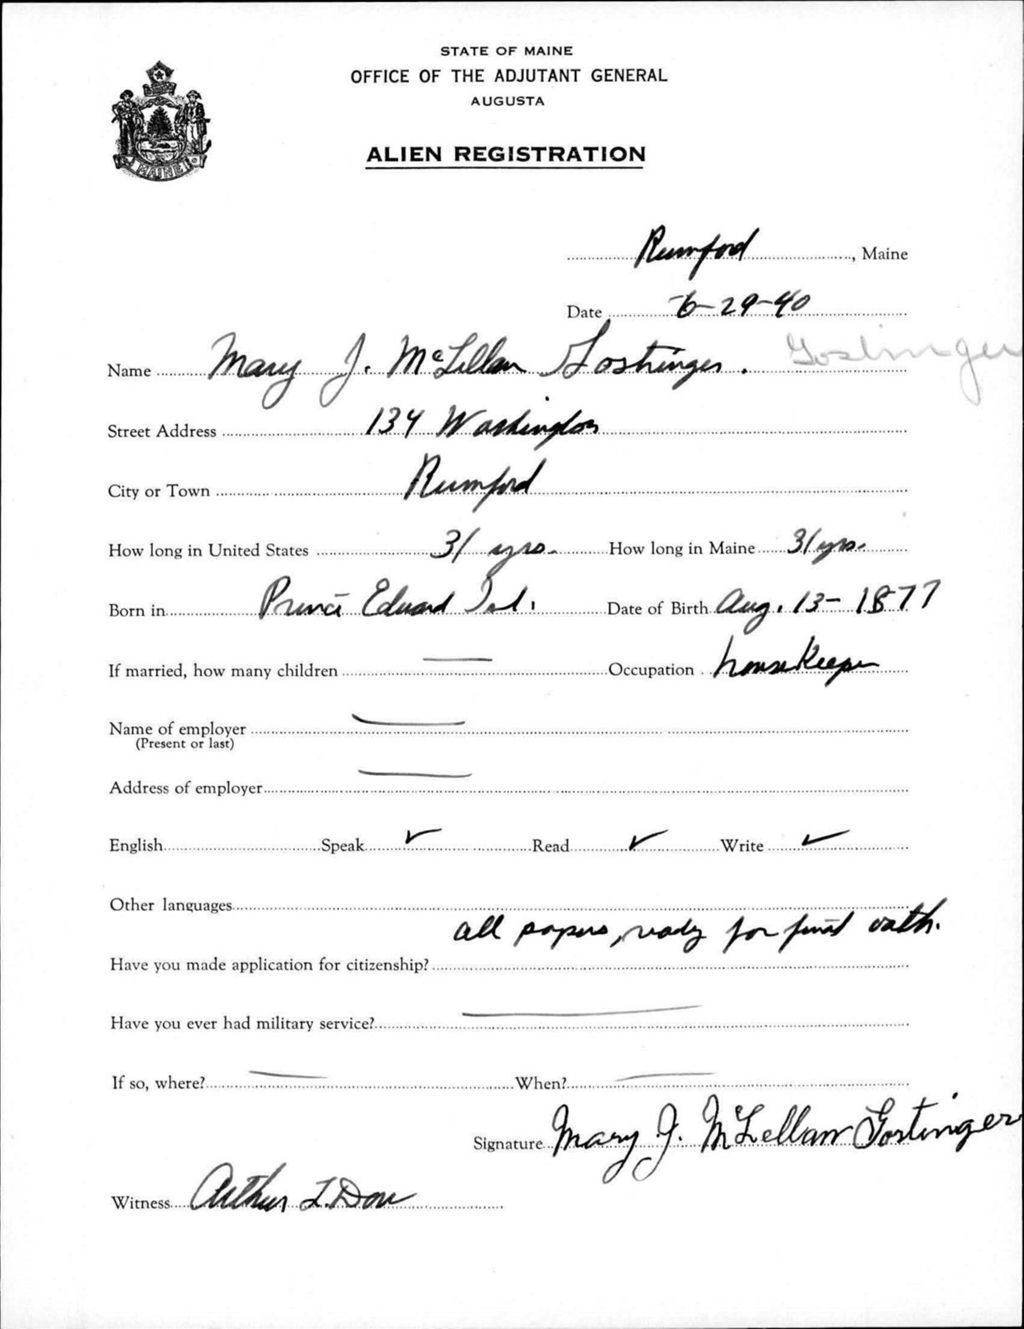 STATE OF MAINE
OFFICE OF THE ADJUTANT GENERAL
AUGUSTA
MAINE
ALIEN REGISTRATION
Rumford, Maine
Date 6-29-40
Name Mary J. McLellan Gostinger. Gostinger
Street Address 134 Washington
City or Town Rumford
How long in United States 31 yrs. How long in Maine 31 yrs.
Born in Prince Edward Isl. Date of Birth Aug. 13-1877
If married, how many children — Occupation housekeeper
Name of employer —
(Present or last)
Address of employer —
English Speak ✓ Read ✓ Write ✓
Other languages
all papers, ready for final oath.
Have you made application for citizenship?
Have you ever had military service? —
If so, where? — When? —
Signature Mary J. McLellan Gostinger
Witness Arthur L. Dow